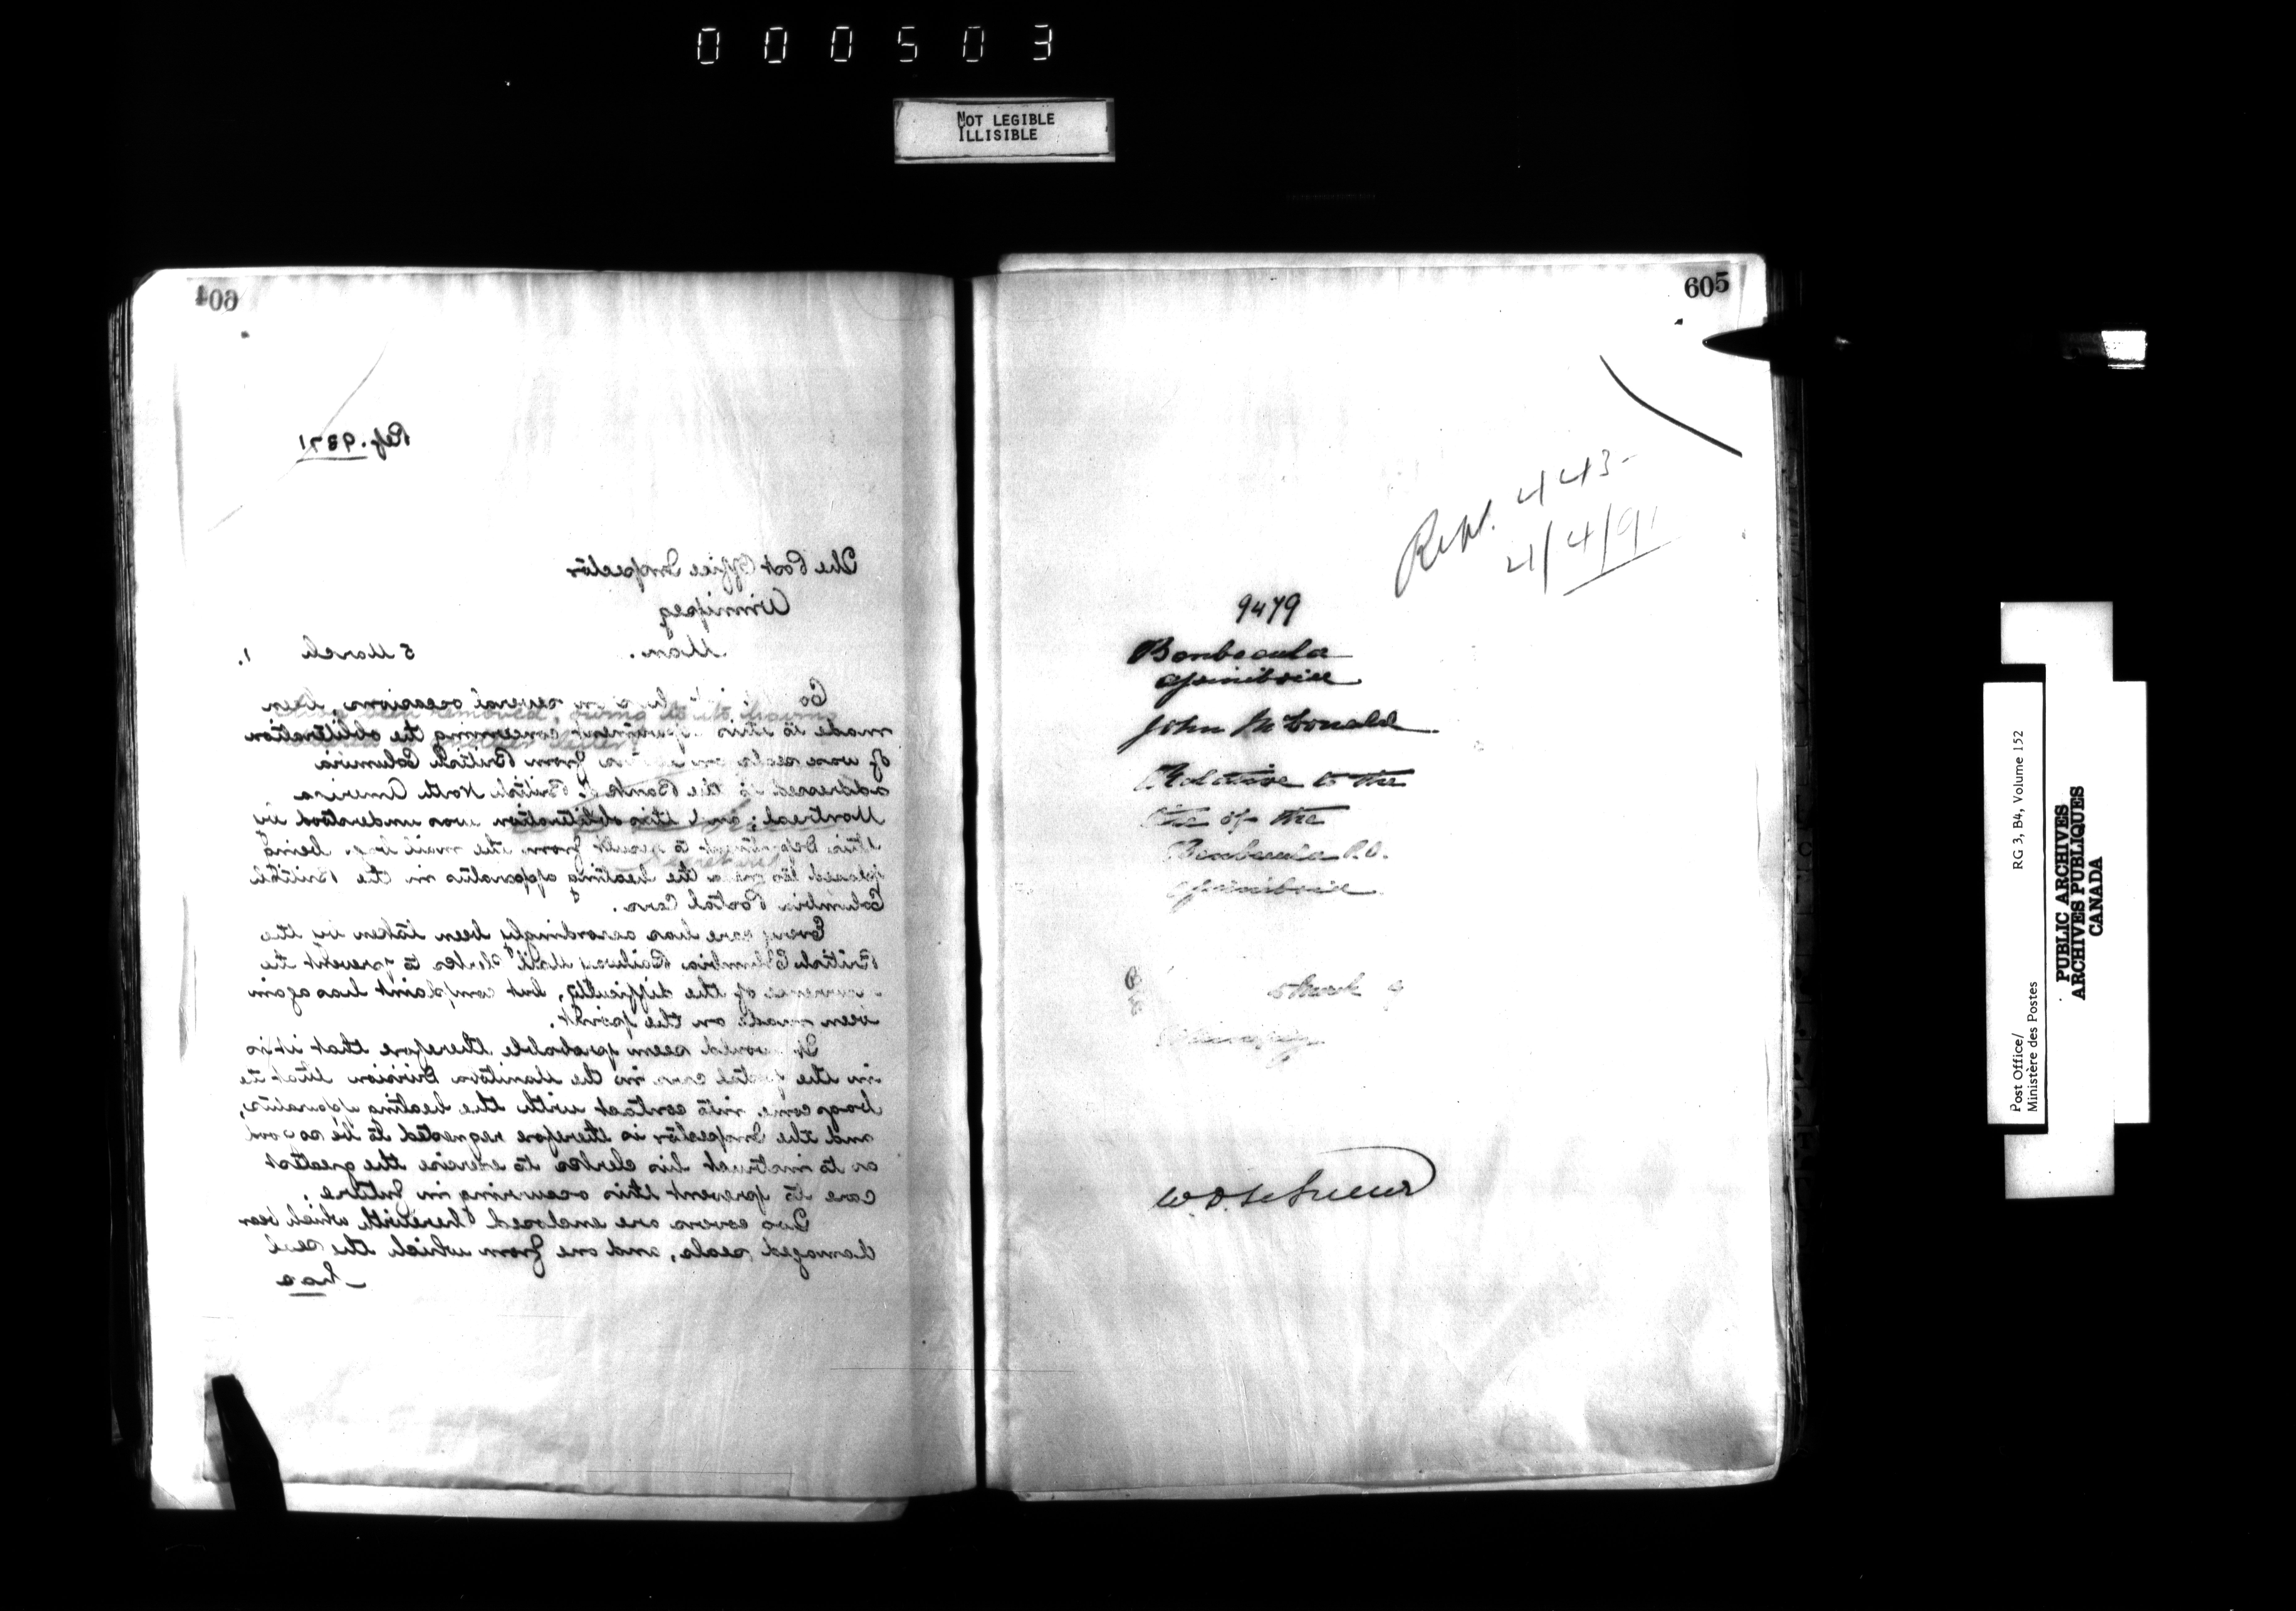 000503
NOT LEGIBLE
ILLISIBLE
604
Ref. 9871
The Post Office Inspector
Winnipeg
Man.
5 March 1.
Complaint has on several occasions, been
made to this Department concerning the obliteration
of wax seals on from British Columbia
addressed to the Bank of British North America
Montreal; and this obliteration was understood in
this Department to result from the mail bags being
placed too near the heating apparatus in the British
Columbia Postal Cars.
Every care has accordingly been taken in the
British Columbia Railway Mail Clerks to prevent the
recurrence of the difficulty, but complaint has again
been made on the point.
It would seem probable therefore that it is
in the postal cars in the Manitoba Division that the
bags come into contact with the heating apparatus,
and the Inspector is therefore requested to be so good
as to instruct his clerks to exercise the greatest
care to prevent this occurring in future.
Two covers are enclosed herewith which bear
damaged seals, and one from which the seal
has
605
443
4/4/91
9479
Benbecula
Assiniboia
John McDonald
Relative to the
of the
Benbecula P.O.
Assiniboia
5 March 9
Winnipeg
W.D. LeSueur
Post Office/
Ministère des Postes
RG 3, B4, Volume 152
PUBLIC ARCHIVES
ARCHIVES PUBLIQUES
CANADA